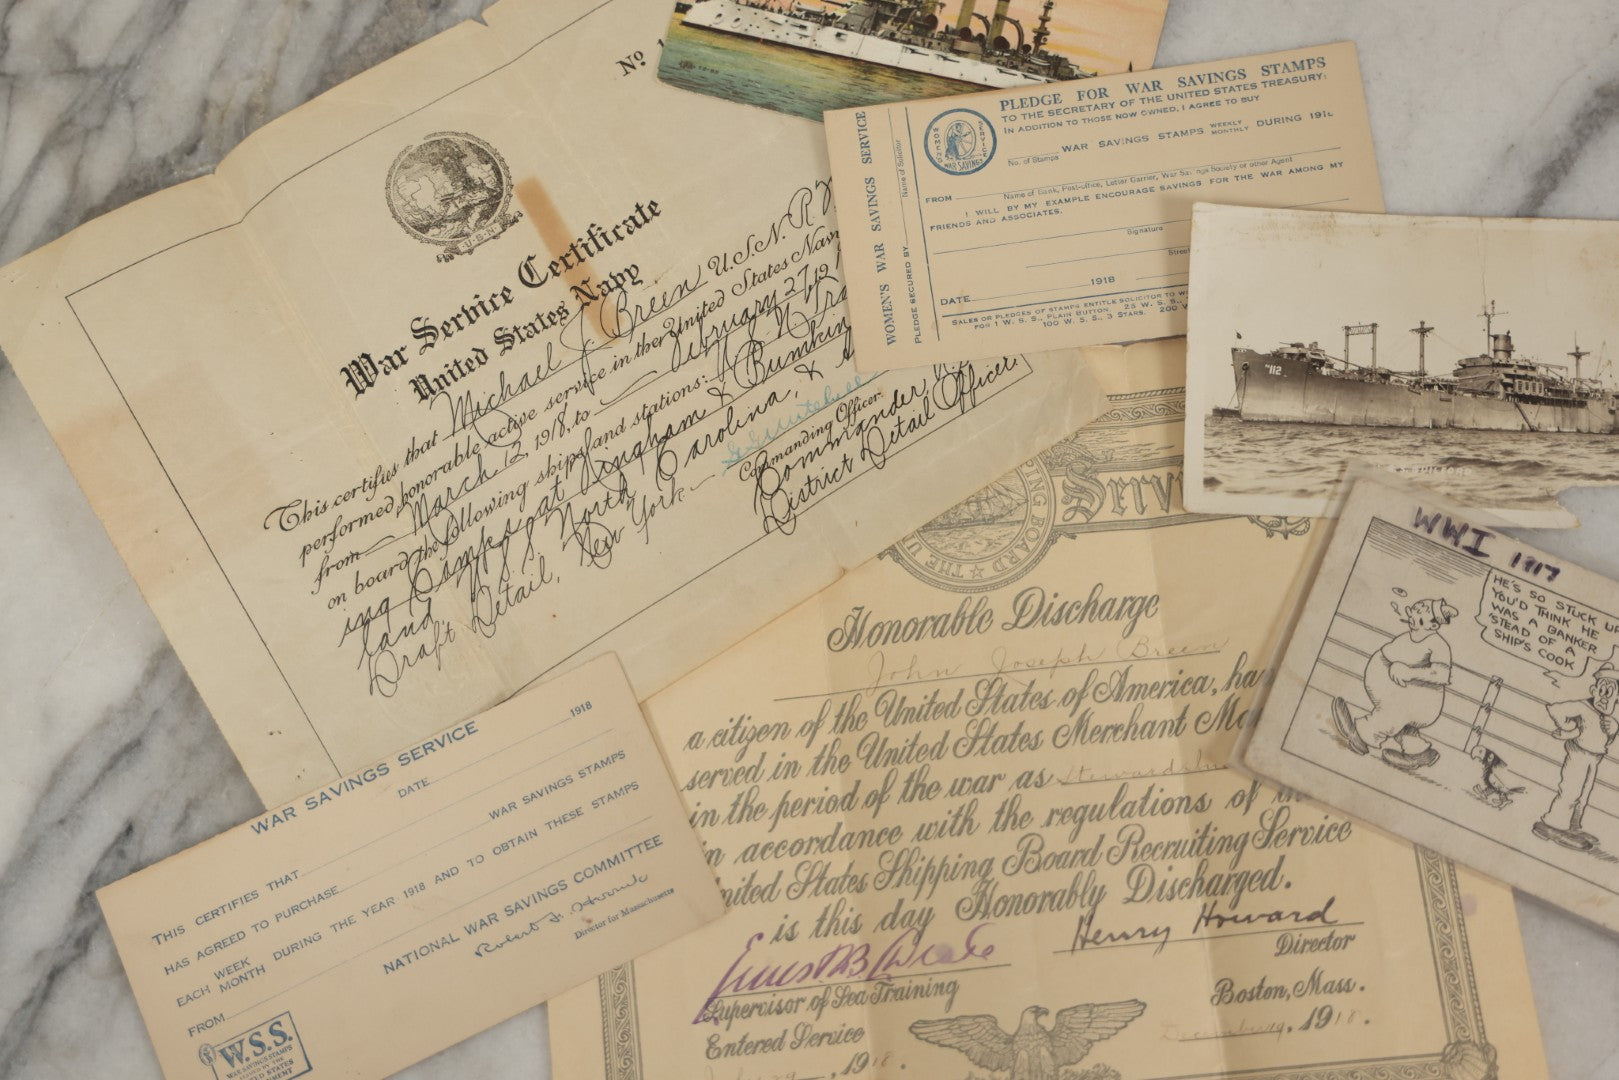 Nº 1
U.S.N.
War Service Certificate
United States Navy
This certifies that Michael J. Breen U.S.N.R.
performed honorable active service in the United States Navy
from March 12, 1918, to February 27, 191
on board the following ships and stations:
ing Camps at Hingham & Bumkin
land
North Carolina, &
Draft Detail, New York
Commanding Officer.
Commander
District Detail Officer.
WOMEN'S WAR SAVINGS SERVICE
PLEDGE SECURED BY
Name of Solicitor
WOMENS SERVICE
WAR SAVINGS
PLEDGE FOR WAR SAVINGS STAMPS
TO THE SECRETARY OF THE UNITED STATES TREASURY:
IN ADDITION TO THOSE NOW OWNED, I AGREE TO BUY
WAR SAVINGS STAMPS WEEKLY MONTHLY DURING 191
No. of Stamps
FROM
Name of Bank, Post-office, Letter Carrier, War Savings Society or other Agent
I WILL BY MY EXAMPLE ENCOURAGE SAVINGS FOR THE WAR AMONG MY
FRIENDS AND ASSOCIATES.
Signature
Street
DATE 1918
SALES OR PLEDGES OF STAMPS ENTITLE SOLICITOR TO W
FOR 1 W. S. S., PLAIN BUTTON. 25 W. S. S.,
100 W. S. S., 3 STARS. 200 W
112
WWI 1917
HE'S SO STUCK UP
YOU'D THINK HE
WAS A BANKER
'STEAD OF A
SHIP'S COOK
ING BOARD ★ THE U
Servi
Honorable Discharge
John Joseph Breen
a citizen of the United States of America, ha
served in the United States Merchant Ma
in the period of the war as
in accordance with the regulations of
nited States Shipping Board Recruiting Service
is this day Honorably Discharged.
Henry Howard
Director
Supervisor of Sea Training
Boston, Mass.
Entered Service
1918.
1918.
WAR SAVINGS SERVICE
DATE 1918
THIS CERTIFIES THAT
HAS AGREED TO PURCHASE WAR SAVINGS STAMPS
EACH WEEK MONTH DURING THE YEAR 1918 AND TO OBTAIN THESE STAMPS
FROM
NATIONAL WAR SAVINGS COMMITTEE
Director for Massachusetts
W.S.S.
WAR SAVINGS STAMPS
ISSUED BY THE
UNITED STATES
GOVERNMENT